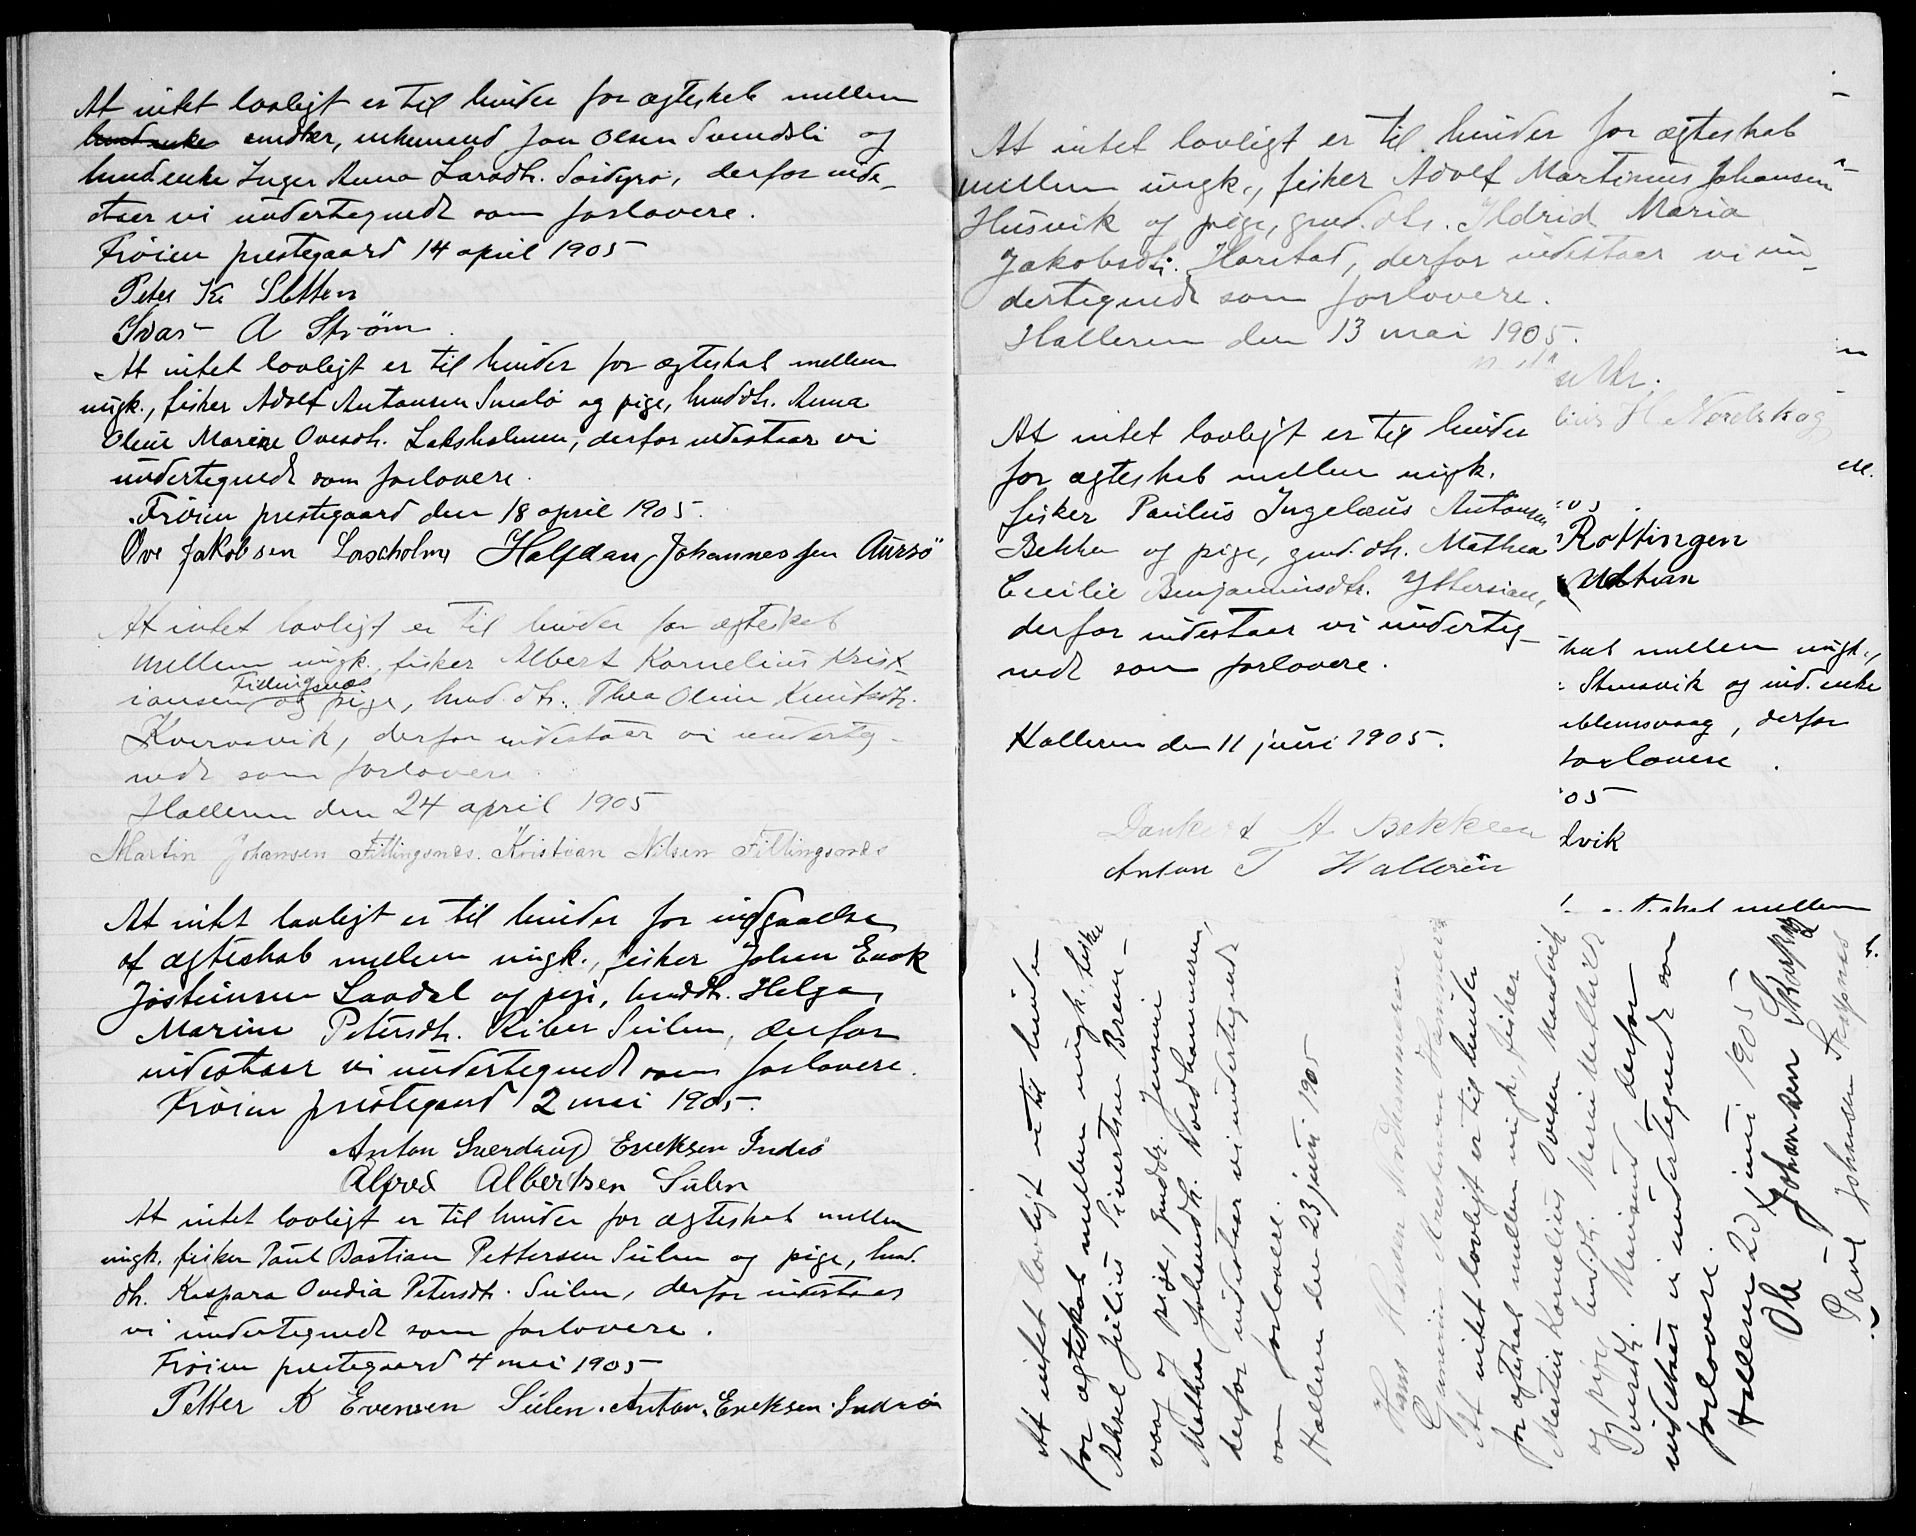 At intet lovligt er til hinder for ægteskab mellem
enkem., enkemand Jon Olsen Svendsli og
husd. enke Inger Anna Larsdtr. Sørdyrø, derfor inde-
staar vi undertegnede som forlovere.
Frøien prestegaard 14 april 1905
Peter Kr Sletten
Ivar A Strøm
At intet lovligt er til hinder for ægteskab mellem
ungk., fisker Adolf Antonsen Smslø og pige, husdtr. Anna
Oline Marine Ovesdtr. Laksholmen, derfor indestaar vi
undertegnede som forlovere.
Frøien prestegaard den 18 april 1905.
Ove Jakobsen Laxholm Halfdan Johannessen Aursø
At intet lovligt er til hinder for ægteskab
mellem ungk., fisker Albert Kornelius Krist-
iansen Fillingsnæs og pige, husd. dtr. Thea Oline Knutsdtr.
Kvervavik, derfor indestaar vi underteg-
nede som forlovere.
Halleren den 24 april 1905
Martin Johansen Fillingsnes. Kristian Nilsen Fillingsnæs
At intet lovligt er til hinder for indgaaelse
af ægteskab mellem ungk., fisker Johan Enok
Jøsteinsen Laadal og pige, husdtr. Helga
Marine Petersdtr. Riber Sulen, derfor
indestaar vi undertegnede som forlovere.
Frøien prestegaard 2 mai 1905.
Anton Sverdrup Ericksen Indrø
Alfred Albertsen Sulen
At intet lovligt er til hinder for ægteskab mellem
ungk. fisker Paul Bastian Pettersen Sulen og pige, husd.
dtr. Kaspara Ovedia Petersdtr. Sulen, derfor indestaar
vi undertegnede som forlovere.
Frøien prestegaard 4 mai 1905
Petter K Evensen Sulen. Anton. Ericksen. Indrø
At intet lovligt er til hinder for ægteskab
mellem ungk., fisker Adolf Martinus Johansen
Husvik og pige, grmd. dtr. Ildrid Maria
Jakobsdtr. Harstad, derfor indestaar vi un-
dertegnede som forlovere.
Halleren den 13 mai 1905.
H. Nordskag
At intet lovligt er til hinder
for ægteskab mellem ungk.
fisker Paulus Ingelæus Antonsen
Bekken og pige, grmd. dtr. Mathea
Cecilie Benjaminsdtr. Yttersian,
derfor indestaar vi underteg-
nede som forlovere.
Halleren den 11 juni 1905.
Dankert A Bekken
Anton T Halleren
05
Rottingen
Uttian
kab mellem ungk.,
Stensvik og ind. enke
blemsvaag, derfor
forlovere.
05
dvik
skab mellem
At intet lovligt er til hinder
for ægteskab mellem ungk. fisker
Aksel Julius Sivertsen Brem-
vaag og pige, husddtr. Jensine
Mathea Johansdtr. Nordhammeren,
derfor indestaar vi undertegnede
som forlovere.
Halleren den 23 juni 1905
Hans Hansen Nordhammeren
Hammervik
At intet lovligt er til hinder
for ægteskab mellem ungk., fisker
Martin Kornelius Ovesen Mausvik
og pige, husd. dtr. Marie
Sivertsdtr. derfor
indestaar vi undertegnede som
forlovere.
Halleren 23 juni 1905
Ole Johansen Skarpnes
Paul Johansen